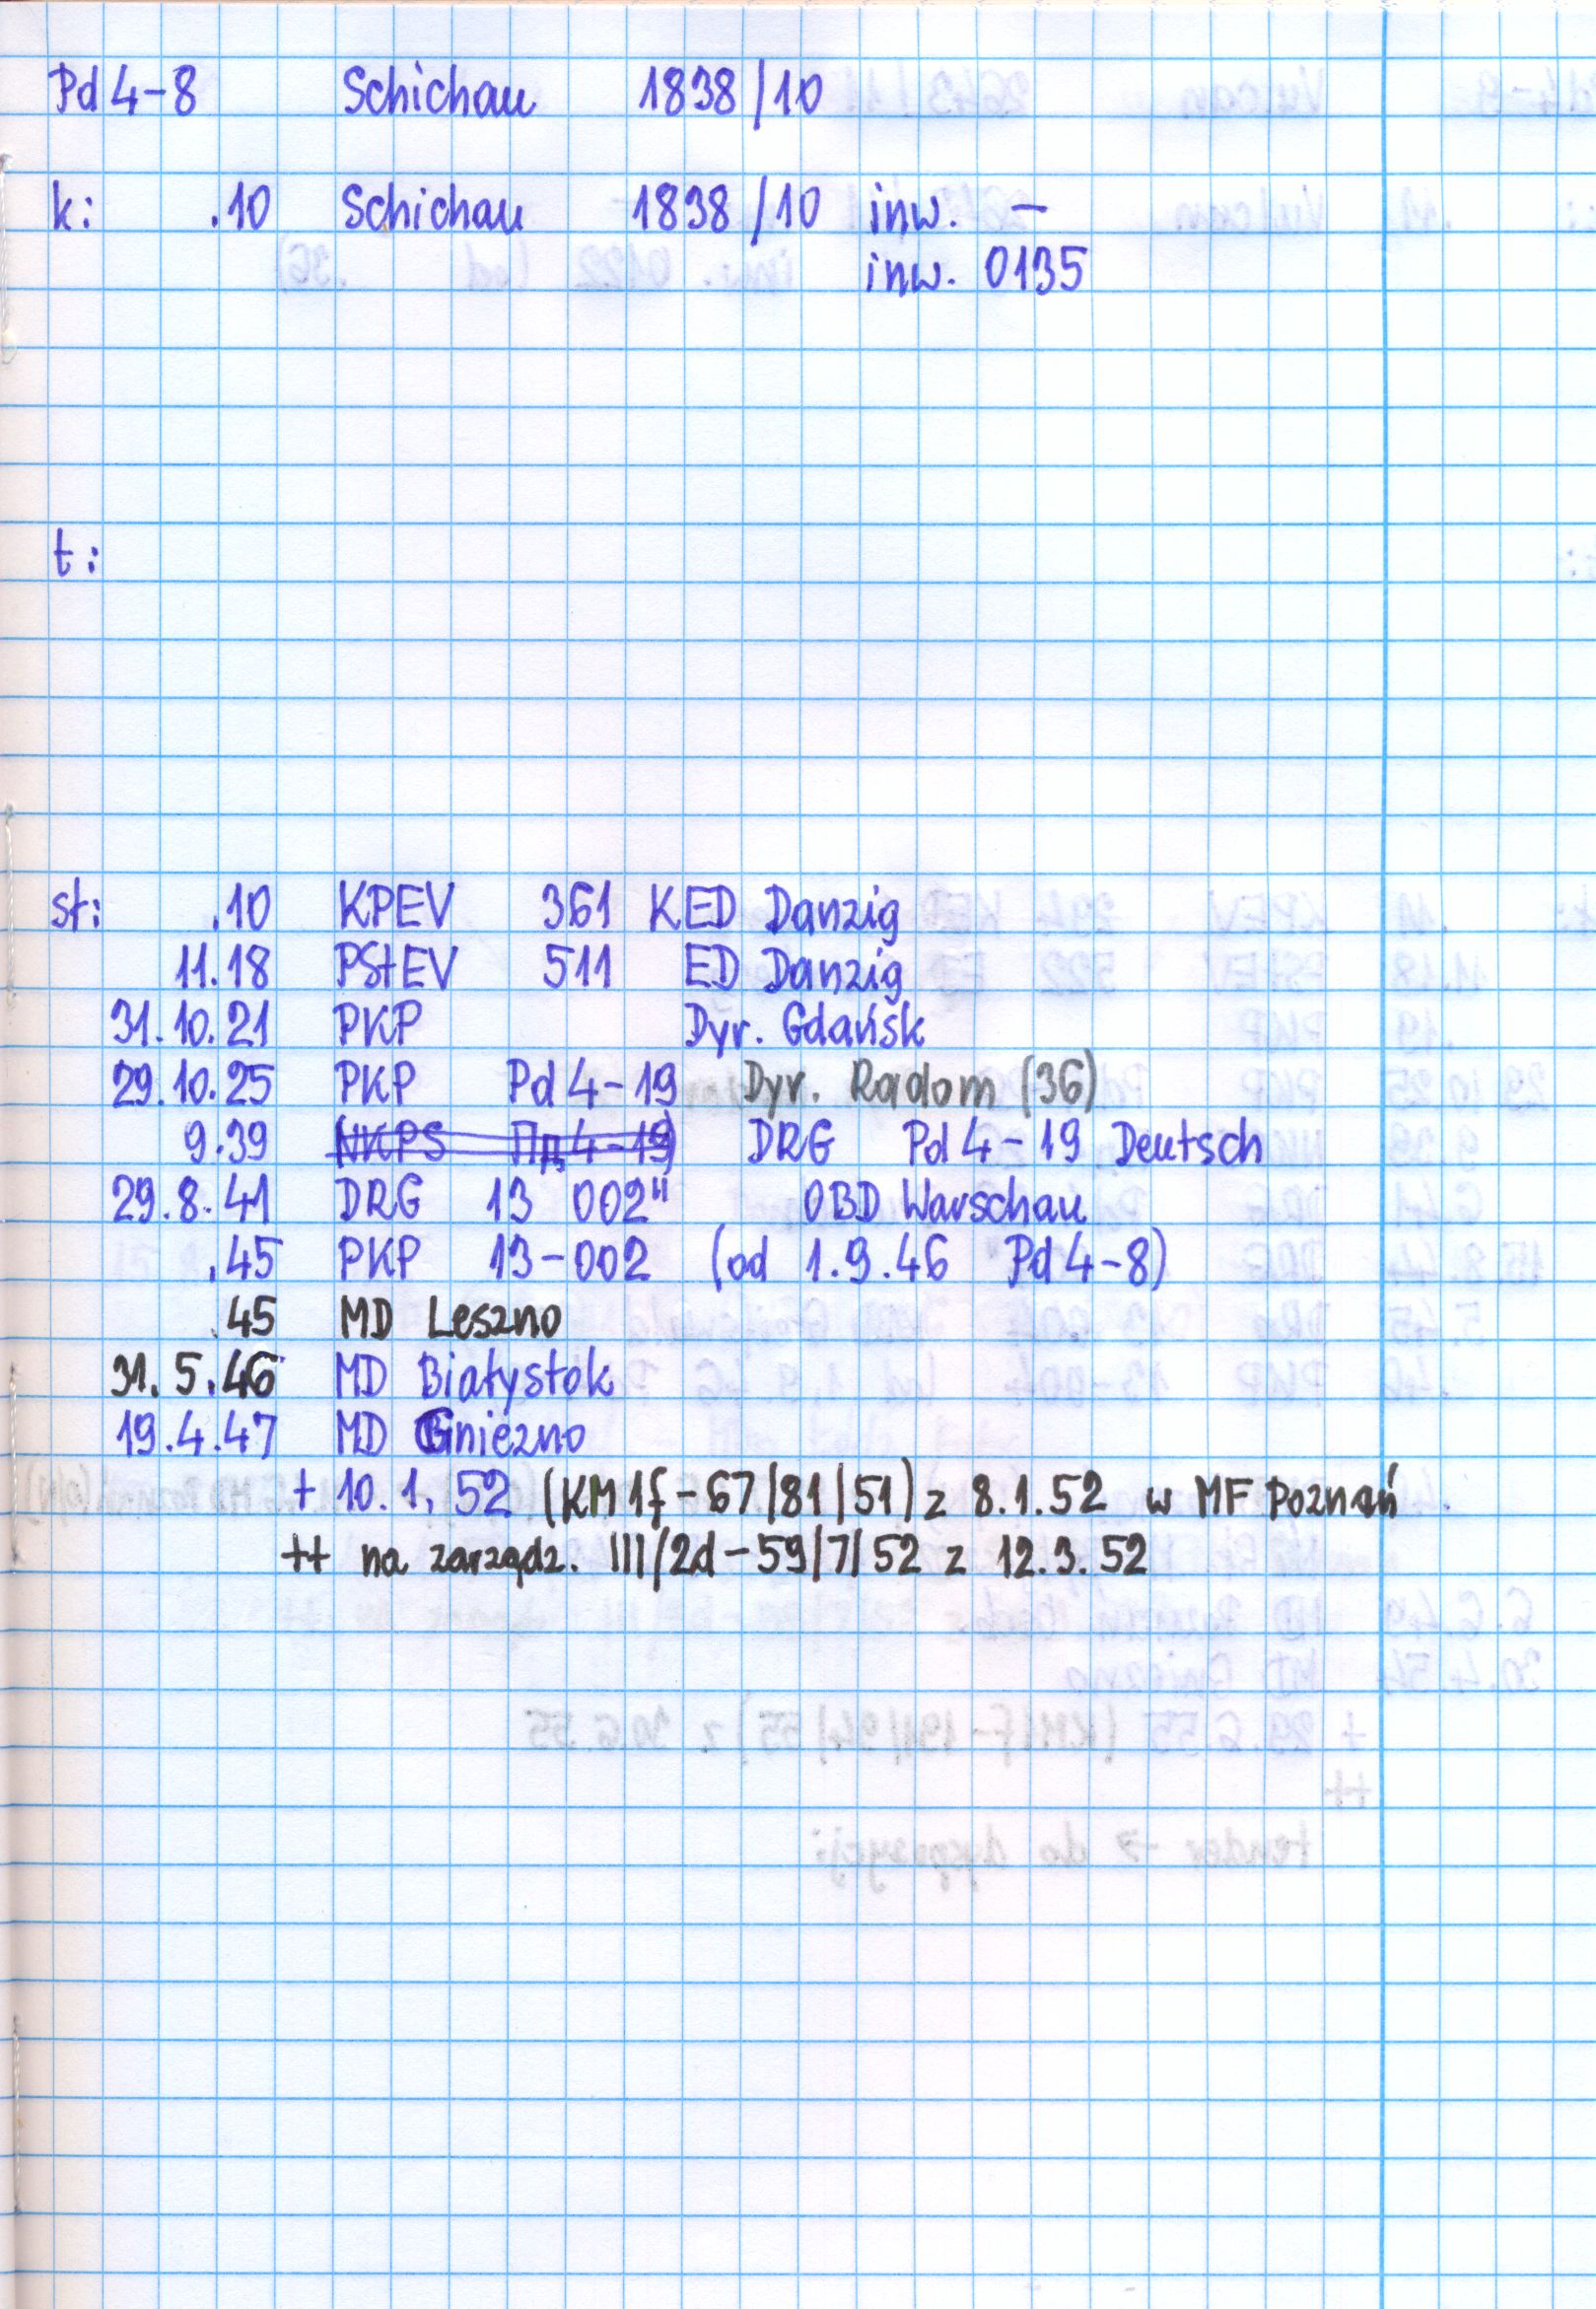 Pd 4-8 Schichau 1838/10
k: .10 Schichau 1838/10 inw. —
inw. 0135
t:
st: .10 KPEV 361 KED Danzig
11.18 PStEV 511 ED Danzig
31.10.21 PKP Dyr. Gdańsk
29.10.25 PKP Pd 4-19 Dyr. Radom (36)
9.39 (NKPS Пд 4-19) DRG Pd 4-19 Deutsch
29.8.41 DRG 13 002" OBD Warschau
.45 PKP 13-002 (od 1.9.46 Pd 4-8)
.45 MD Leszno
31.5.46 MD Białystok
19.4.47 MD Gniezno
+ 10.1.52 (KM1f-67/81/51) z 8.1.52 w MF Poznań
++ na zarządz. III/2d-59/7/52 z 12.3.52